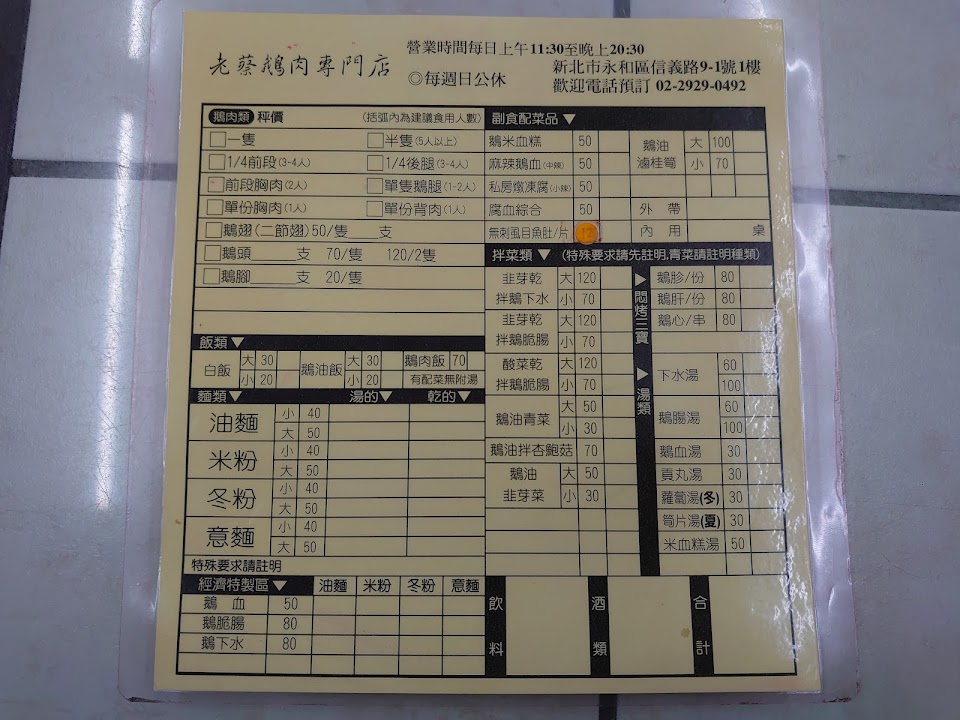 老蔡鵝肉專門店
營業時間每日上午11:30至晚上20:30
◎每週日公休
新北市永和區信義路9-1號1樓
歡迎電話預訂 02-2929-0492
鵝肉類 秤價 (括弧內為建議食用人數)
一隻 半隻(5人以上)
1/4前段(3-4人) 1/4後腿(3-4人)
前段胸肉(2人) 單隻鵝腿(1-2人)
單份胸肉(1人) 單份背肉(1人)
鵝翅(二節翅)50/隻____支
鵝頭____支 70/隻 120/2隻
鵝腳____支 20/隻
飯類▼
白飯 大 30 小 20
鵝油飯 大 30 小 20
鵝肉飯 70
有配菜無附湯
麵類▼ 湯的▼ 乾的▼
油麵 小 40 大 50
米粉 小 40 大 50
冬粉 小 40 大 50
意麵 小 40 大 50
特殊要求請註明
經濟特製區▼ 油麵 米粉 冬粉 意麵
鵝血 50
鵝脆腸 80
鵝下水 80
副食配菜品▼
鵝米血糕 50
麻辣鵝血(中辣) 50
私房燉凍腐(小辣) 50
腐血綜合 50
無刺虱目魚肚/片
鵝油滷桂筍 大 100 小 70
外帶
內用 桌
拌菜類▼(特殊要求請先註明,青菜請註明種類)
韭芽乾拌鵝下水 大 120 小 70
韭芽乾拌鵝脆腸 大 120 小 70
酸菜乾拌鵝脆腸 大 120 小 70
鵝油青菜 大 50 小 30
鵝油拌杏鮑菇 70
鵝油韭芽菜 大 50 小 30
▶悶烤三寶
鵝胗/份 80
鵝肝/份 80
鵝心/串 80
▶湯類
下水湯 60 100
鵝腸湯 60 100
鵝血湯 30
貢丸湯 30
蘿蔔湯(冬) 30
筍片湯(夏) 30
米血糕湯 50
飲料
酒類
合計